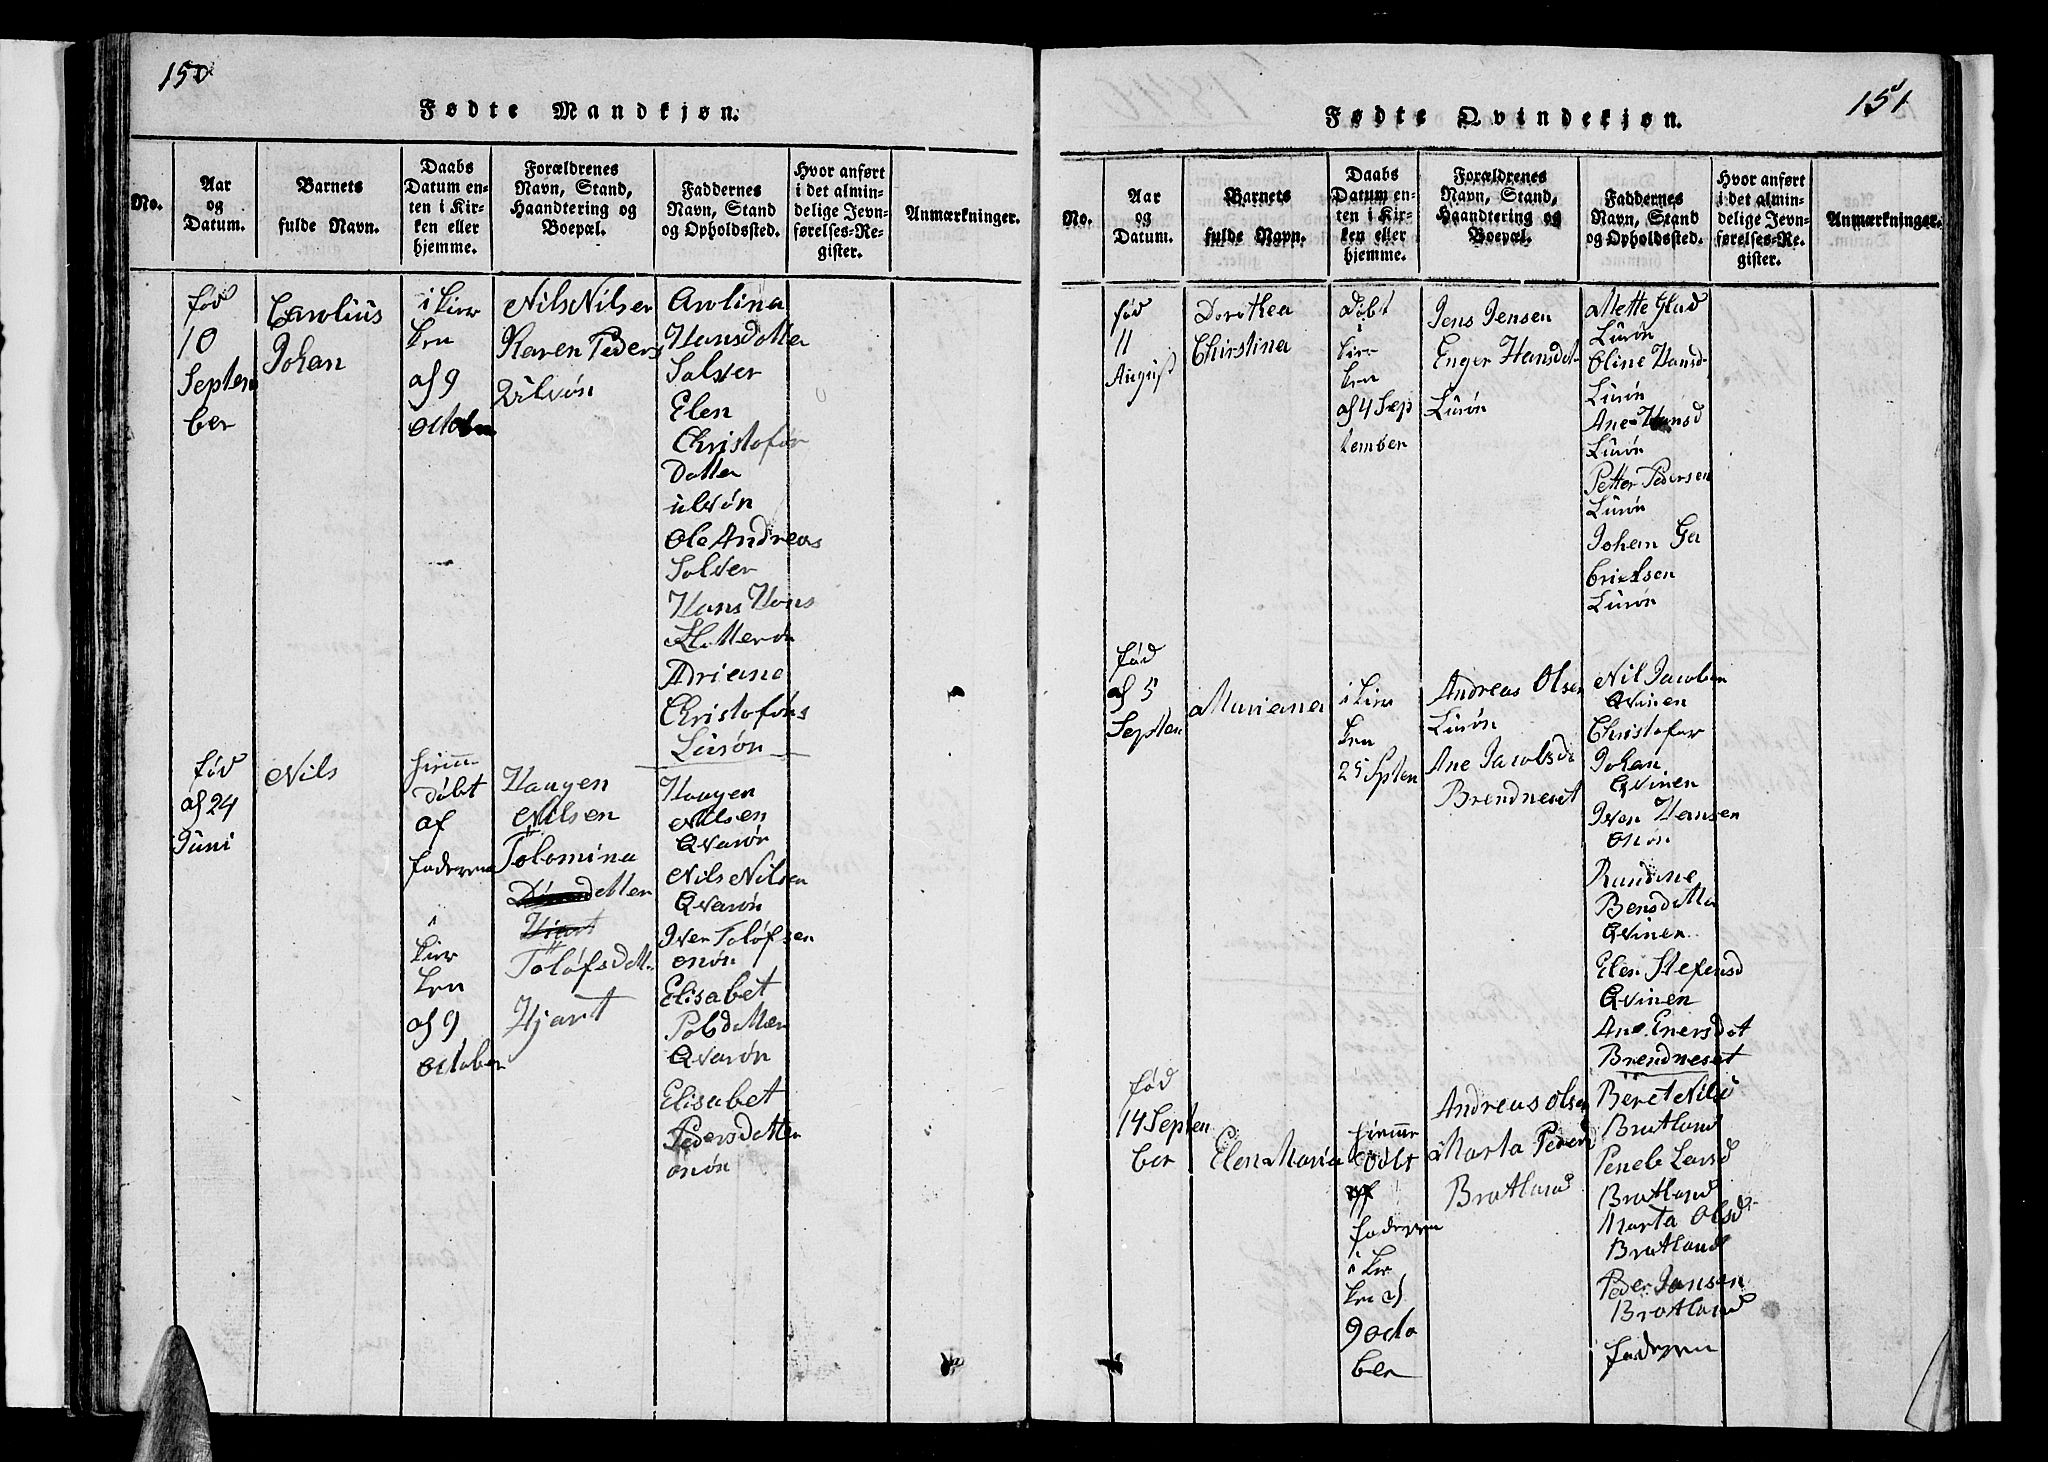 150
Fødte Mandkjøn.
No.
Aar
og
Datum.
Barnets
fulde Navn.
Daabs
Datum en-
ten i Kir-
ken eller
hjemme.
Forældrenes
Navn, Stand,
Haandtering og
Boepæl.
Faddernes
Navn, Stand
og Opholdssted.
Hvor anført
i det almin-
delige Jevn-
førelses-Re-
gister.
Anmærkninger.
fød
10
Septem
ber
Carolius
Johan
i kirr
ken
af 9
octobr
Nils Nilsen
Karen Peders
Arolina
Hansdotter
Solver
Elen
Christofor
Dotter
ulvön
Ole Andreas
Solver
Hans Hans
Adriane
Christofors
Luròn
fød
af 24
Juni
Nils
döbt
af
faderen
i
kirr
ken
af 9
october
Haagen
Nilsen
Tolomina
Tolöfsdatt
Hjart
Haagen
Nilsen
Qvaròn
Nils Nilsen
Qvaròn
Iver Tolöfsen
onòn
Elisabet
Polsdatter
Qvaròn
Elisabet
Pedersdatter
onòn
151
Fødte Qvindekjøn.
No.
Aar
og
Datum.
Barnets
fulde Navn.
Daabs
Datum en-
ten i Kir-
ken eller
hjemme.
Forældrenes
Navn, Stand,
Haandtering og
Boepæl.
Faddernes
Navn, Stand
og Opholdssted.
Hvor anført
i det almin-
delige Jevn-
førelses-Re-
gister.
Anmærkninger.
fød
11
August
Dorothea
Christina
Döbt
i
kirr
ken
af 4 Sep
tember
Jens Jensen
Enger Hansdot
Luròn
Mette Glad
Luròn
Oline Hansd
Luròn
Ane Hansd
Luròn
Petter Pedersen
Luròn
Johan Ga
brielsen
Luròn
fød
af 5
Septen
Mariana
i kirr
ken
25 Spten
Andreas Olsen
Luròn
Ane Jacobsd
Brendneset
Nil Jacobsen
Qvinen
Christofor
Johan
Qvinen
Iven Hansen
onòn
Rundine
Bensdatter
Qvinen
Elen Stefensd
Qvinen
Ane Enersdot
Brendneset
fød
14 Septen
ber
Elen Maria
Döbt
af
faderen
i kir
ken af
9 octo
ber
Andreas Olsen
Marta Pedersd
Bratland
Beret Nilsd
Bratland
Penele Larsd
Bratland
Marta Olsd
Bratland
Peder Jansen
Bratland
faderen